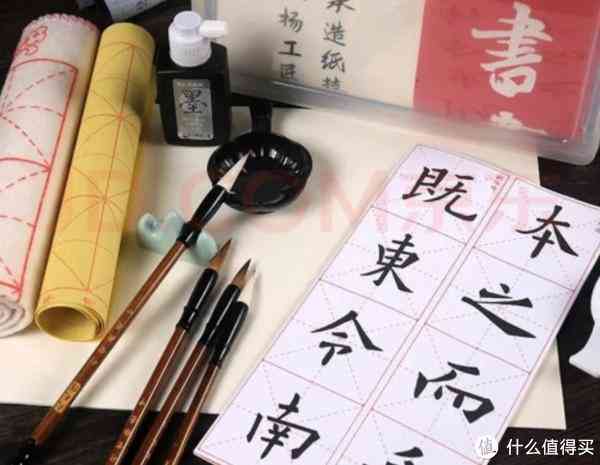 書
造纸技
扬工匠
墨
本之而
既東令南
值 什么值得买